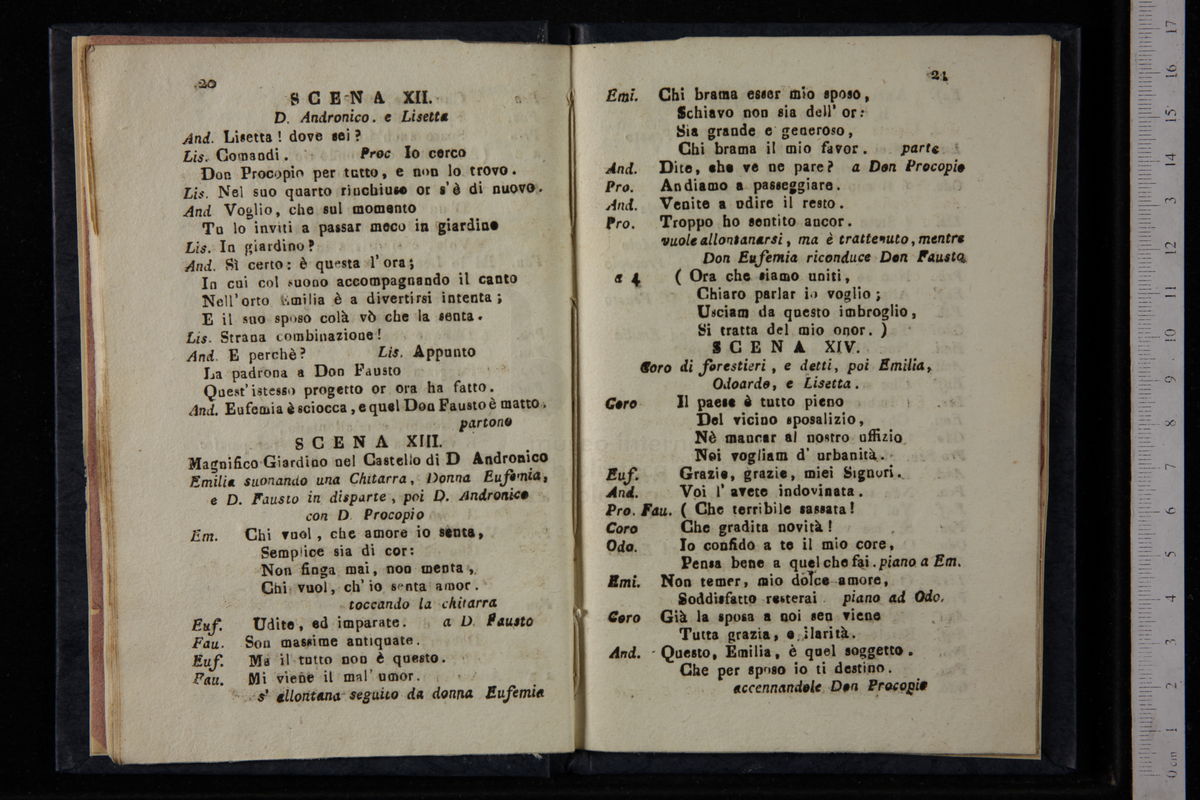 20
SCENA XII.
D. Andronico. e Lisetta
And. Lisetta! dove sei?
Lis. Comandi. Proc Io cerco
Don Procopio per tutto, e non lo trovo.
Lis. Nel suo quarto rinchiuso or s'è di nuovo.
And Voglio, che sul momento
Tu lo inviti a passar meco in giardino
Lis. In giardino?
And. Sì certo: è questa l'ora;
In cui col suono accompagnando il canto
Nell'orto Emilia è a divertirsi intenta;
E il suo sposo colà vò che la senta.
Lis. Strana combinazione!
And. E perchè? Lis. Appunto
La padrona a Don Fausto
Quest'istesso progetto or ora ha fatto.
And. Eufemia è sciocca, e quel Don Fausto è matto.
partono
SCENA XIII.
Magnifico Giardino nel Castello di D Andronico
Emilia suonando una Chitarra, Donna Eufemia,
e D. Fausto in disparte, poi D. Andronico
con D. Procopio
Em. Chi vuol, che amore io senta,
Semplice sia di cor:
Non finga mai, non menta,
Chi vuol, ch'io senta amor.
toccando la chitarra
Euf. Udite, ed imparate. a D. Fausto
Fau. Son massime antiquate.
Euf. Ma il tutto non è questo.
Fau. Mi viene il mal'umor.
s'allontana seguito da donna Eufemia
21
Emi. Chi brama esser mio sposo,
Schiavo non sia dell'or:
Sia grande e generoso,
Chi brama il mio favor. parte
And. Dite, che ve ne pare? a Don Procopio
Pro. Andiamo a passeggiare.
And. Venite a udire il resto.
Pro. Troppo ho sentito ancor.
vuole allontanarsi, ma è trattenuto, mentre
Don Eufemia riconduce Don Fausto,
a 4 (Ora che siamo uniti,
Chiaro parlar io voglio;
Usciam da questo imbroglio,
Si tratta del mio onor.)
SCENA XIV.
Coro di forestieri, e detti, poi Emilia,
Odoardo, e Lisetta.
Coro Il paese è tutto pieno
Del vicino sposalizio,
Nè mancar al nostro uffizio
Noi vogliam d'urbanità.
Euf. Grazie, grazie, miei Signori.
And. Voi l'avete indovinata.
Pro. Fau. (Che terribile sassata!
Coro Che gradita novità!
Odo. Io confido a te il mio core,
Pensa bene a quel che fai. piano a Em.
Emi. Non temer, mio dolce amore,
Soddisfatto resterai. piano ad Odo.
Coro Già la sposa a noi sen viene
Tutta grazia, e ilarità.
And. Questo, Emilia, è quel soggetto.
Che per sposo io ti destino.
accennandole Don Procopio
0 cm 1 2 3 4 5 6 7 8 9 10 11 12 13 14 15 16 17